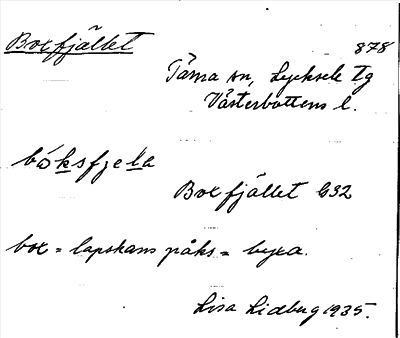 Boxfjället
878
Tärna sn, Lycksele Tg
Västerbottens l.
båksfjela
Boxfjället G32
box = lapskans påks = byxa.
Lisa Lidberg 1935.